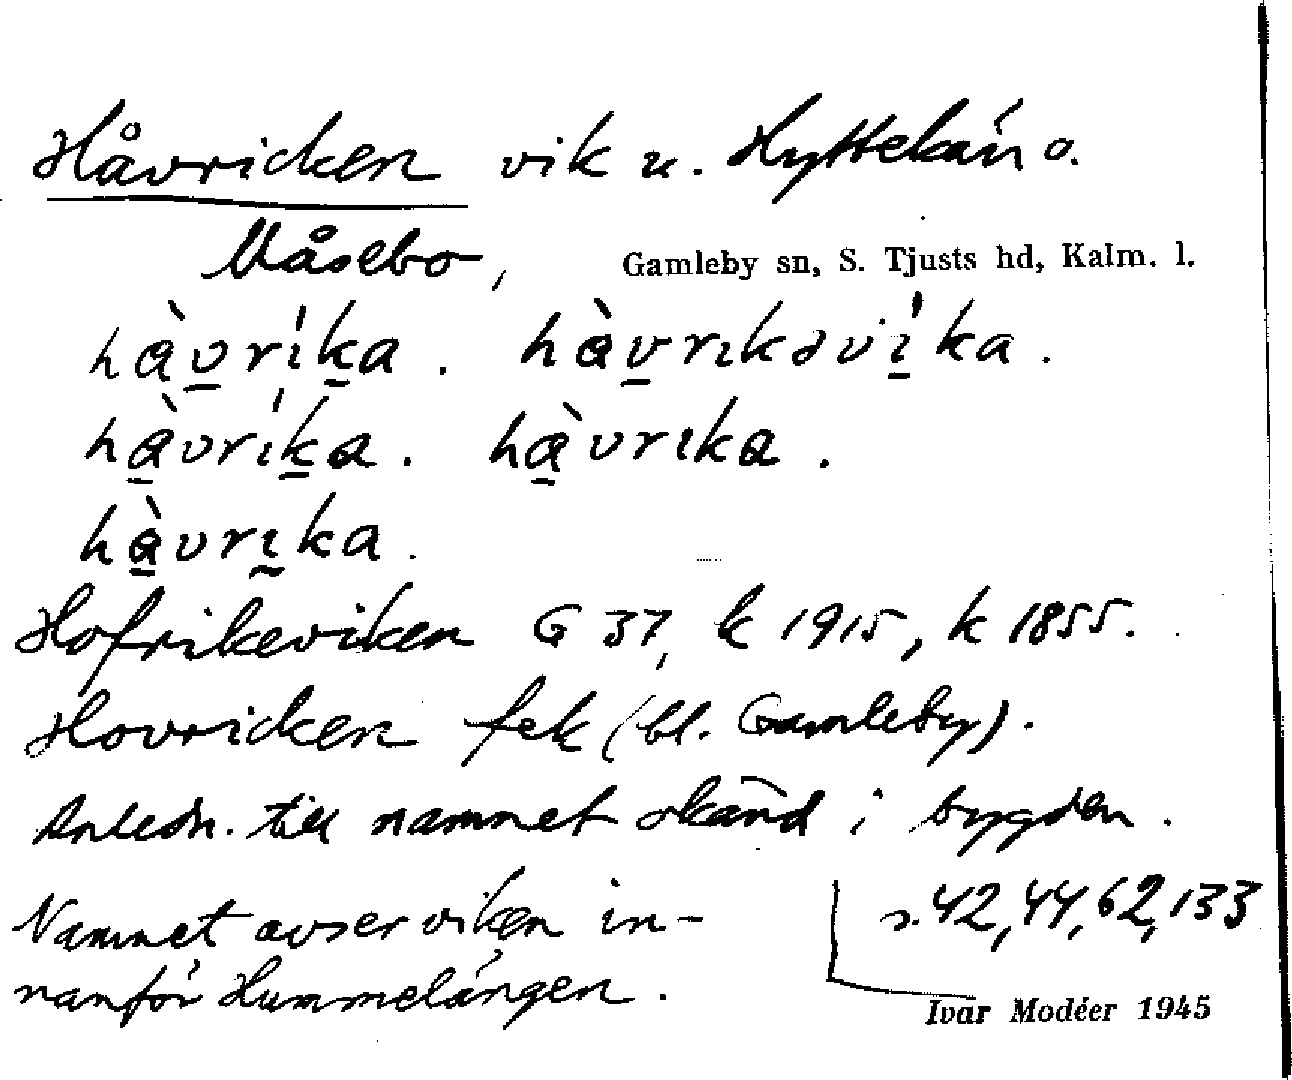 Håvricken vik u. Hyttekärr o.
Måsebo, Gamleby sn, S. Tjusts hd, Kalm. l.
hàvríka. hàvrıkəvíka.
hàvríka. hàvrıka.
hàvrıka.
Hofrikeviken G 37, k 1915, k 1855.
Hovricken fek (bl. Gamleby).
Anledn. till namnet okänd i bygden.
Namnet avser viken in-
nanför Hummelängen.
s. 42, 44, 62, 133
Ivar Modéer 1945